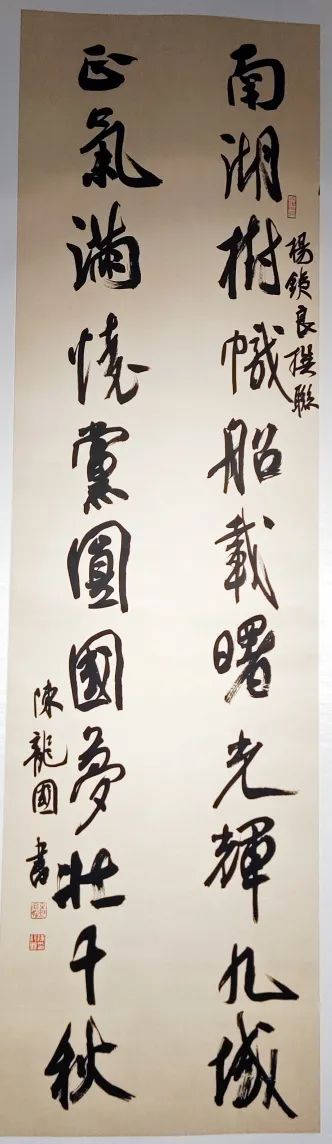 楊鎖良撰聯
南湖樹幟船載曙光輝九域
正氣滿懷黨圓國夢壯千秋
陳龍國書